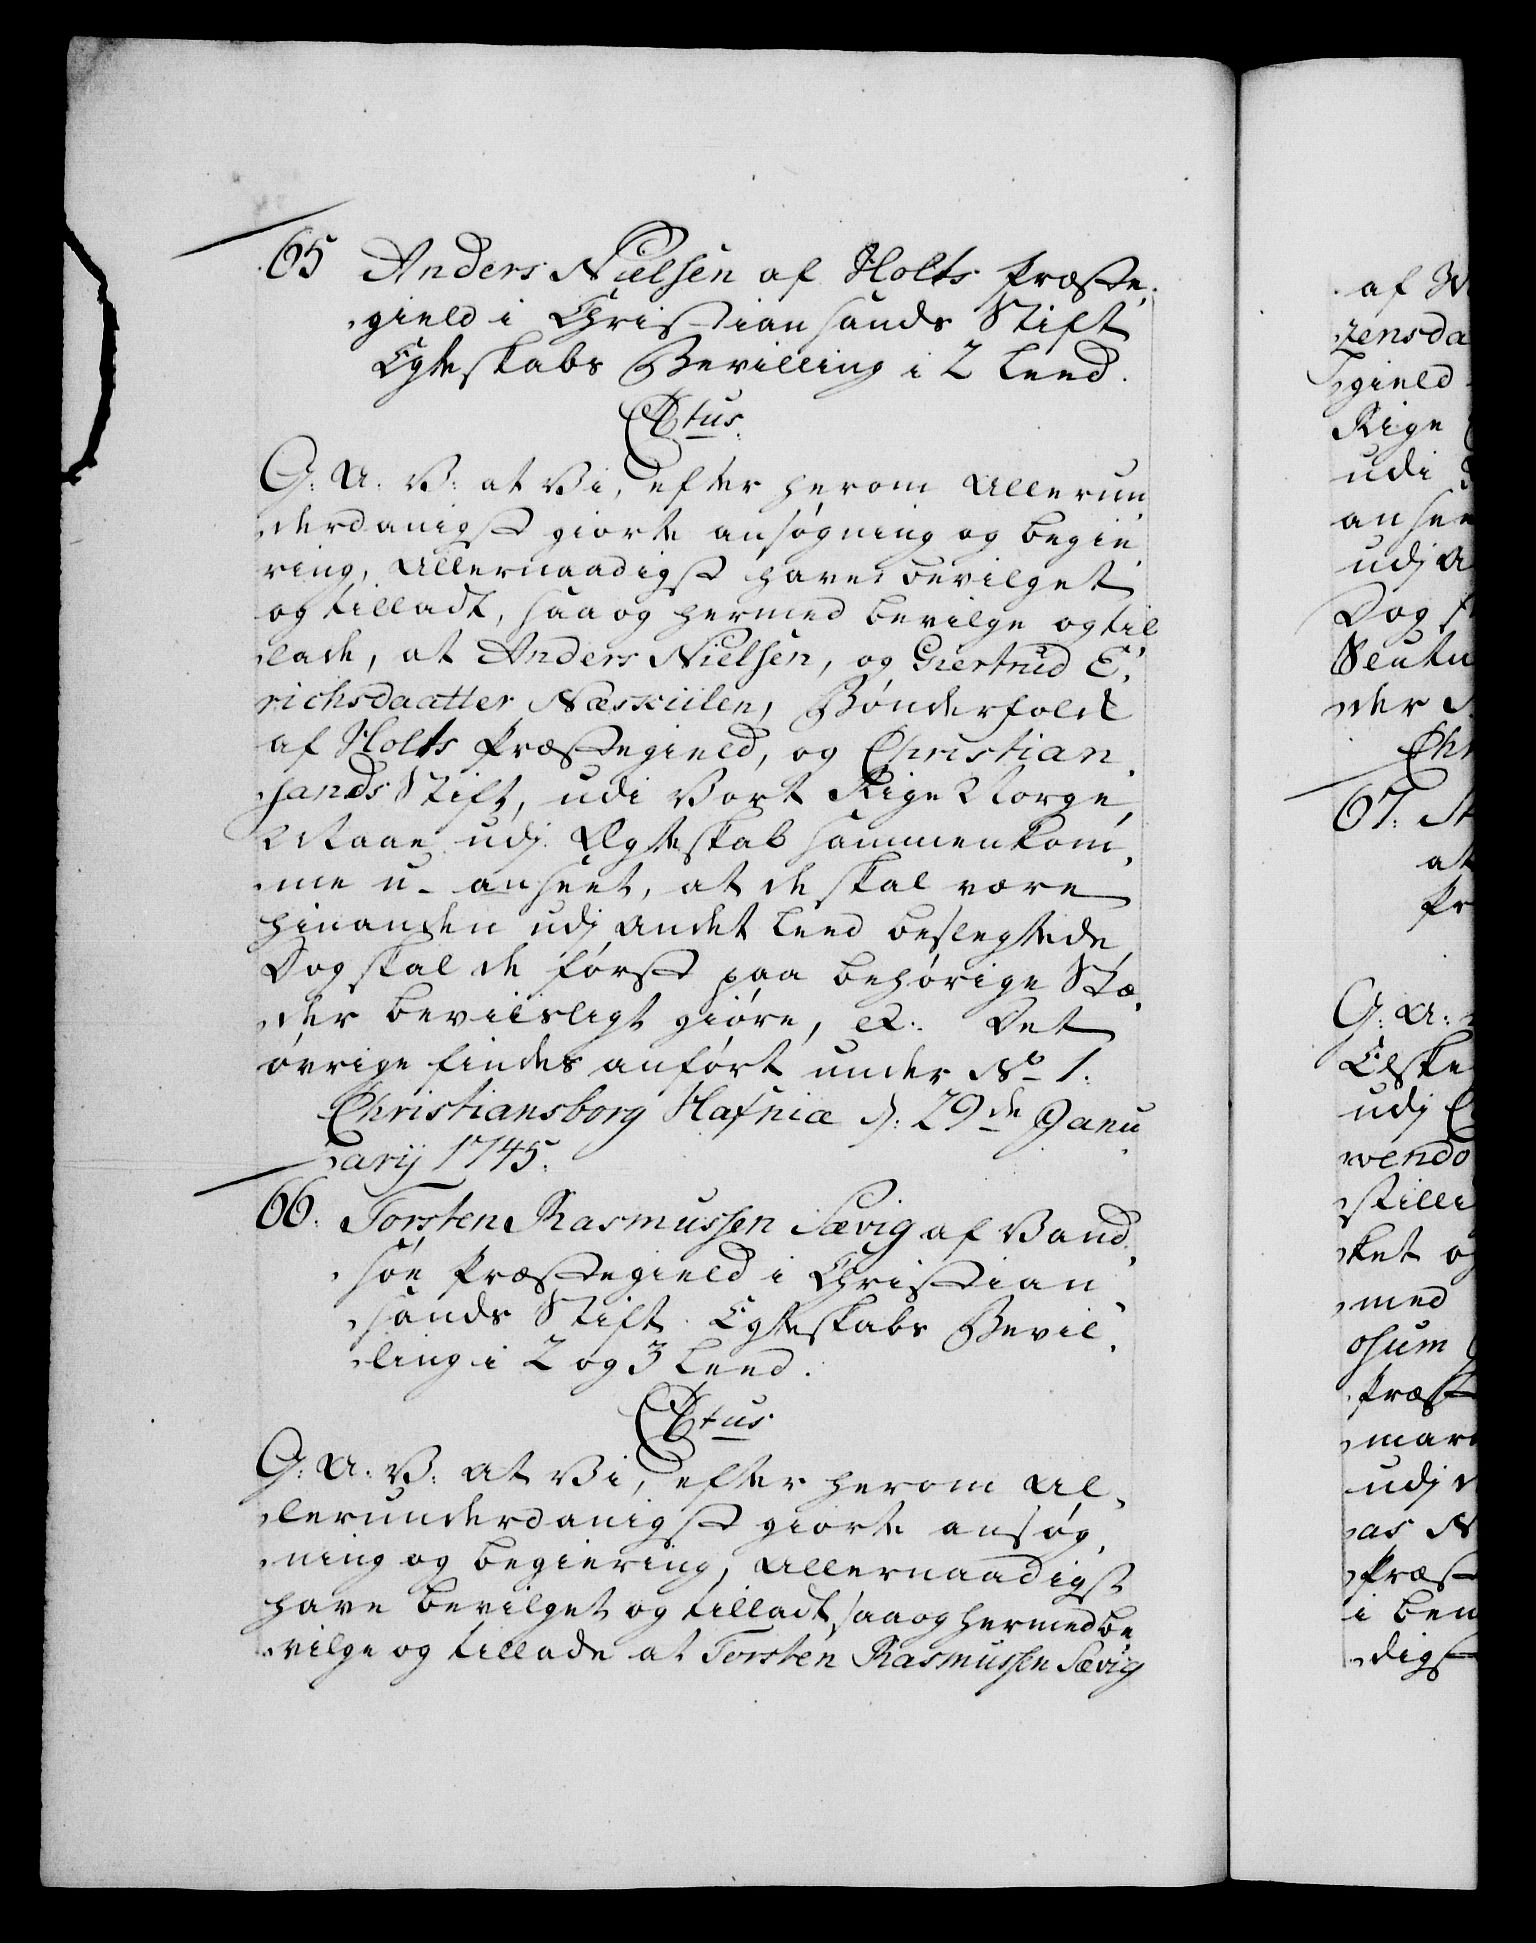 65 Anders Nielsen af Holts Præste-
gield i Christiansands Stift
Egteskabs Bevilling i 2 Leed.
C 6tus.
G: A: V: at Vi, efter herom Allerun-
derdanigst giorte ansøgning og begie-
ring, Allernaadigst have bevilget
og tilladt, saa og hermed bevilge og til-
lade, at Anders Nielsen, og Giertrud E-
richsdaatter Næskiilen, Bønderfolk
af Holts Præstegield, og Christian-
sands Stift, udi Vort Rige Norge,
Maae udj Ægteskab sammenkom-
me u-anseet, at de skal være
hinanden udj andet Leed beslegtede,
Dog skal de først paa behørige Stæ-
der beviisligt giøre, etc: Det
øvrige findes anført under No 1.
Christiansborg Hafniæ d: 29de Janu-
arij 1745.
66. Torsten Rasmussen Sævig af Vand-
søe Præstegield i Christian-
sands Stift Egteskabs Bevil-
ling i 2 og 3 Leed.
C 6tus
G: A: V: at Vi, efter herom Al-
lerunderdanigst giorte ansøg-
ning og begiering, Allernaadigst
have bevilget og tilladt, saa og hermed be-
vilge og tillade at Torsten Rasmussen Sævig
af
zensda
gield
Rige
udi
ansee
udj A
Dog
Slutn
der
Chr
67. 
at
Pr
G: A:
Elske
udj
wendo
stilli
ket og
med
osum
Præst
mar
udj
as N
Præst
i ben
digst